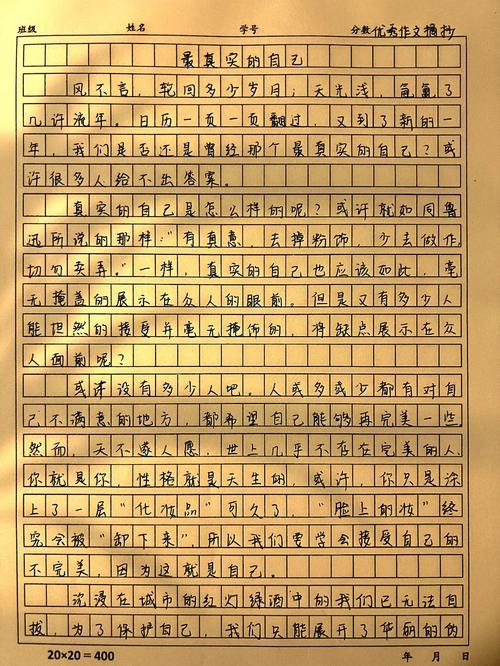 班级 姓名 学号 分数 优秀作文摘抄
最真实的自己
风不言，轮回多少岁月；天光浅，氤氲了
几许流年。日历一页一页翻过，又到了新的一
年，我们是否还是曾经那个最真实的自己？或
许很多人给不出答案。
真实的自己是怎么样的呢？或许就如同鲁
迅所说的那样："有真意，去掉粉饰，少去做作，
切勿卖弄。"一样，真实的自己也应该如此，毫
无掩盖的展示在众人的眼前。但是又有多少人
能坦然的接受并毫无掩饰的，将缺点展示在众
人面前呢？
或许没有多少人吧。人或多或少都有对自
己不满意的地方，都希望自己能够再完美一些
然而，天不遂人愿，世上几乎不存在完美的人，
你就是你，性格就是天生的，或许，你只是涂
上了一层"化妆品"可久了，"脸上的妆"终
究会被"卸下来"，所以我们要学会接受自己的
不完美，因为这就是自己。
沉浸在城市的红灯绿酒中的我们已无法自
拔，为了保护自己，我们只能展开了华丽的伪
20×20＝400 年 月 日